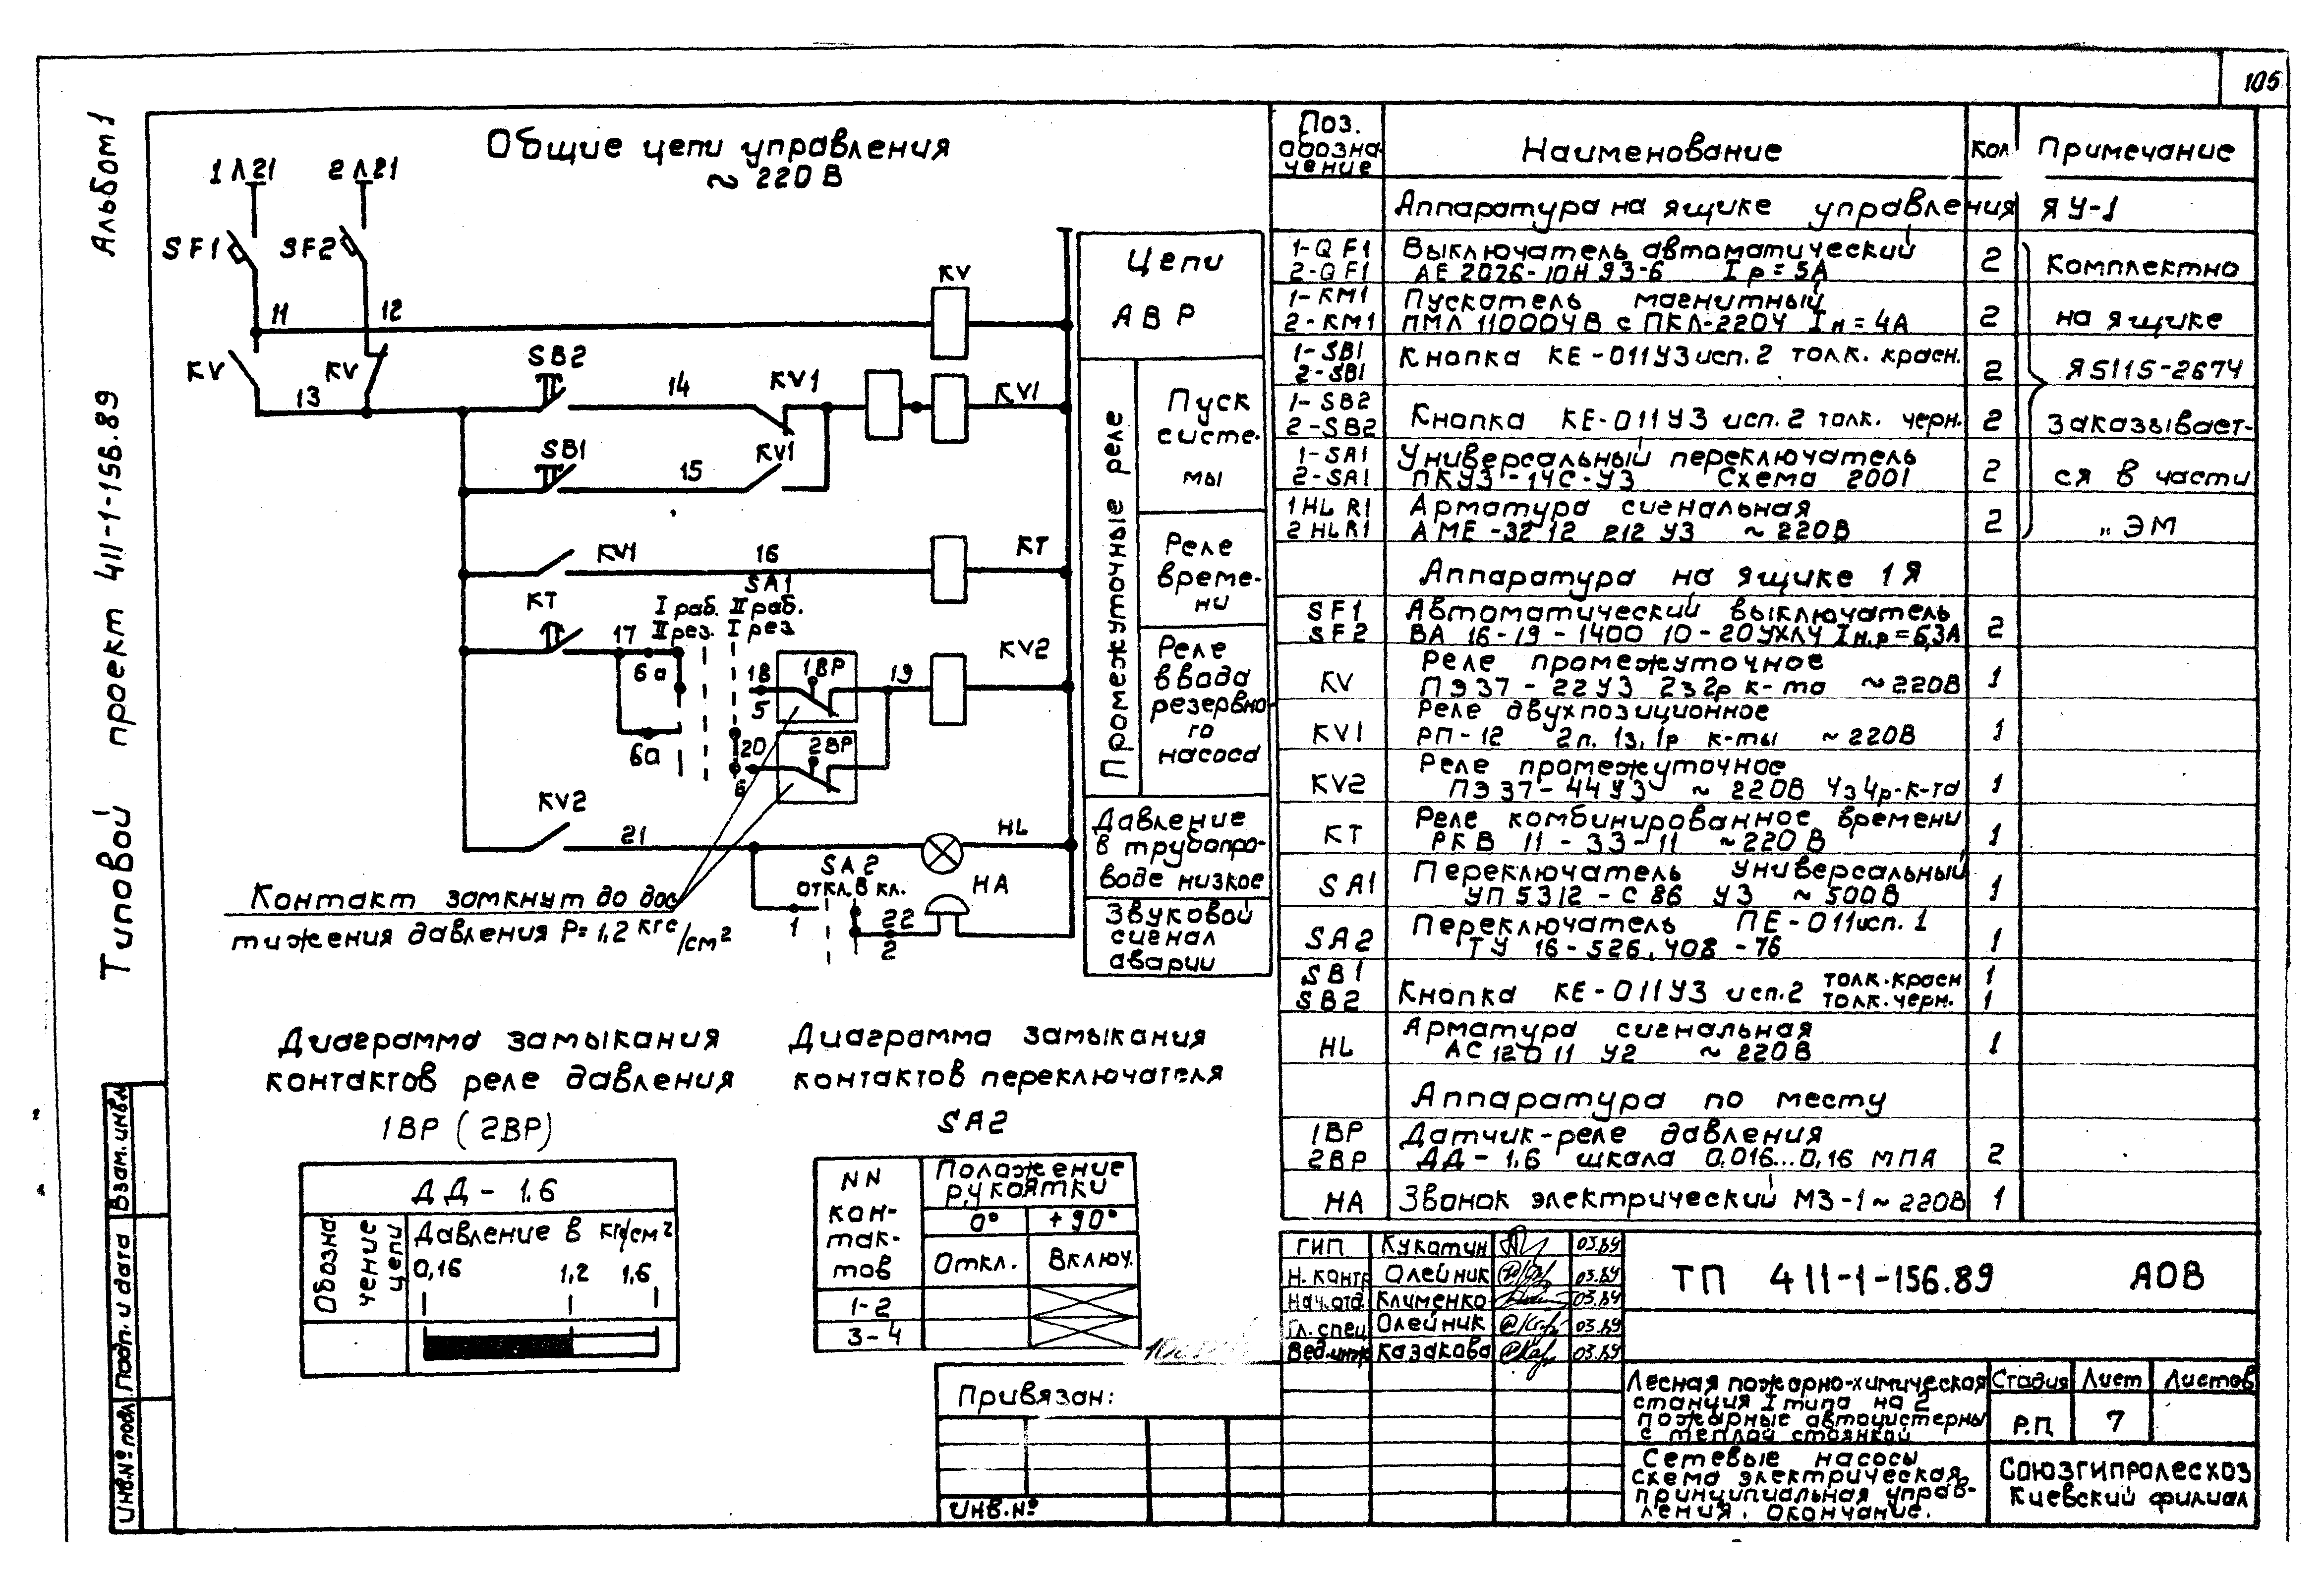 105
Альбом 1
Типовой проект 411-1-156.89
Взам. инв.№
Подп. и дата
Инв.№ подл.
Общие цепи управления
~ 220 В
1Л21
2Л21
SF1
SF2
11
12
KV
KV
KV
13
SB2
14
KV1
KV1
SB1
15
KV1
KV1
16
KT
KT
SA1
I раб. II раб.
II рез. I рез.
17
6а
6а
18
5
1ВР
19
KV2
20
6
2ВР
KV2
21
HL
SA2
ОТКЛ. ВКЛ.
HA
1
22
2
Контакт замкнут до дос
тижения давления P=1,2 кгс/см²
Цепи
АВР
Промежуточные реле
Пуск
систе-
мы
Реле
време-
ни
Реле
ввода
резервно-
го
насоса
Давление
в трубопро-
воде низкое
Звуковой
сигнал
аварии
Диаграмма замыкания
контактов реле давления
1ВР (2ВР)
ДД - 1,6
Обозна
чение
цепи
Давление в кг/см²
0,16 1,2 1,6
Диаграмма замыкания
контактов переключателя
SA2
NN
кон-
так-
тов
Положение
рукоятки
0° +90°
Откл. Включ.
1-2
3-4
Поз.
обозна
чение
Наименование
Кол
Примечание
Аппаратура на ящике управления ЯУ-1
1-QF1
2-QF1
Выключатель автоматический
АЕ 2026-10Н 93-6 Iр=5А
2
1-KM1
2-KM1
Пускатель магнитный
ПМЛ 110004В с ПКЛ-2204 Iн=4А
2
1-SB1
2-SB1
Кнопка КЕ-011У3 исп.2 толк. красн.
2
1-SB2
2-SB2
Кнопка КЕ-011У3 исп.2 толк. черн.
2
1-SA1
2-SA1
Универсальный переключатель
ПКУ3-14С-У3 Схема 2001
2
1HLR1
2HLR1
Арматура сигнальная
АМЕ-3212 212 У3 ~220В
2
Комплектно
на ящике
Я5115-2674
заказывает-
ся в части
„ ЭМ
Аппаратура на ящике 1Я
SF1
SF2
Автоматический выключатель
ВА 16-19-1400 10-20УХЛ4 Iн.р=6,3А
2
KV
Реле промежуточное
ПЭ37-22У3 2з2р к-та ~220В
1
KV1
Реле двухпозиционное
РП-12 2п. 1з,1р к-ты ~220В
1
KV2
Реле промежуточное
ПЭ37-44У3 ~220В 4з4р-к-та
1
KT
Реле комбинированное времени
РКВ 11-33-11 ~220В
1
SA1
Переключатель универсальный
УП5312-С86 У3 ~500В
1
SA2
Переключатель ПЕ-011исп.1
ТУ 16-526.408-76
1
SB1
SB2
Кнопка КЕ-011У3 исп.2
толк.красн
толк.черн.
1
1
HL
Арматура сигнальная
АС 12011 У2 ~220В
1
Аппаратура по месту
1ВР
2ВР
Датчик-реле давления
ДД-1,6 шкала 0,016...0,16 МПА
2
HA
Звонок электрический МЗ-1~220В
1
ГИП Кукотин 03.89
Н.контр Олейник 03.89
Нач.отд. Клименко 03.89
Гл.спец Олейник 03.89
Вед.инж Казакова 03.89
ТП 411-1-156.89 АОВ
Лесная пожарно-химическая
станция I типа на 2
пожарные автоцистерны
с теплой стоянкой
Стадия Лист Листов
Р.П. 7
Сетевые насосы
Схема электрическая
принципиальная управ-
ления. Окончание.
Союзгипролесхоз
Киевский филиал
Привязан:
Инв.№